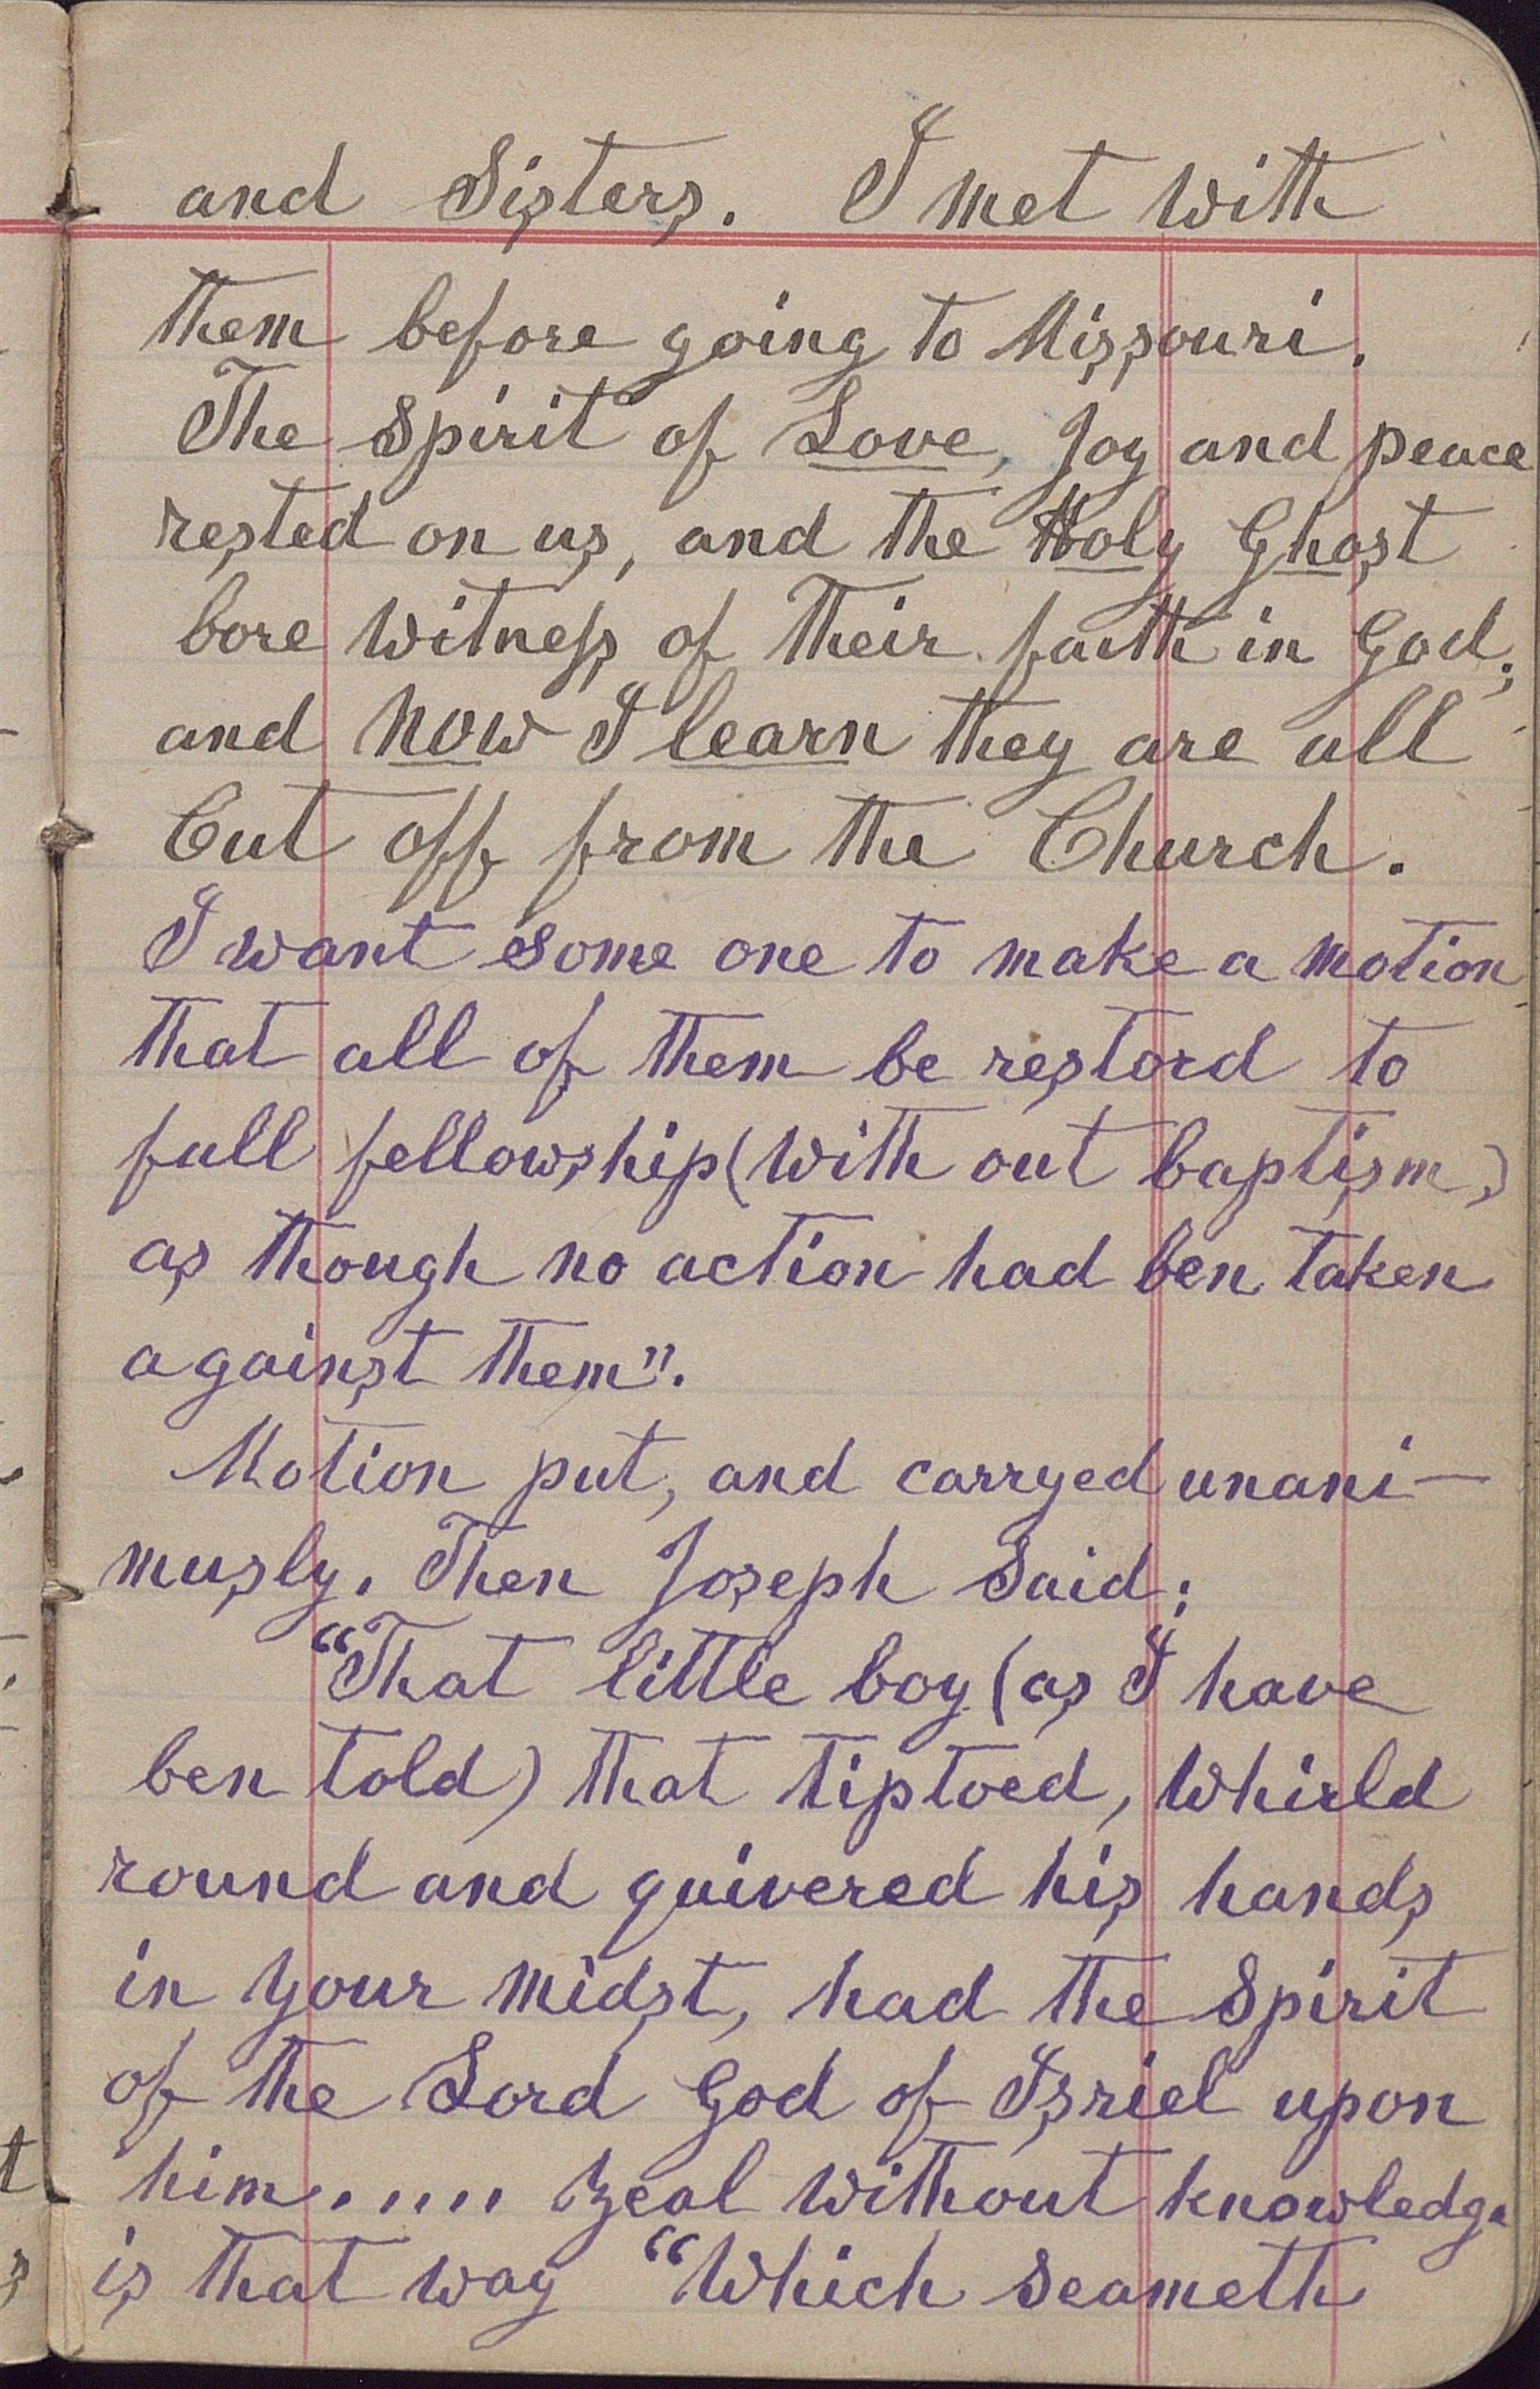 and Sisters. I met with
them before going to Missouri.
The Spirit of Love, Joy and peace
rested on us, and the Holy Ghost
bore witness of their faith in God;
and now I learn they are all
Cut off from the Church.
I want some one to make a motion
that all of them be restord to
full fellowship (with out baptism,)
as though no action had ben taken
against them".
Motion put, and carryed unani-
musly. Then Joseph Said;
"That little boy (as I have
ben told) that tiptoed, whirld
round and quivered his hands
in your midst, had the Spirit
of the Lord God of Isriel upon
him..... Zeal without knowledge
is that way "Which seameth